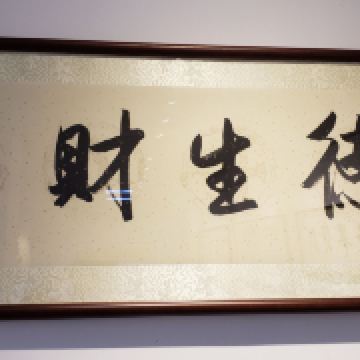 德生財